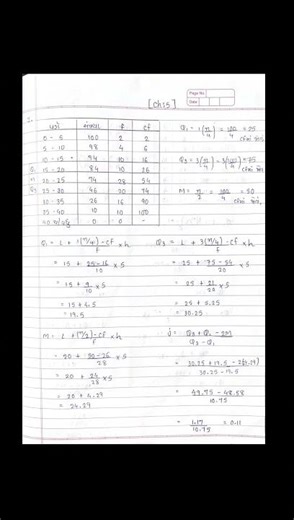 Page No.
Date
[Ch15]
f cf
0 - 5 100 2 2
5 - 10 98 4 6
10 - 15 94 10 16
15 - 20 84 10 26
20 - 25 74 28 54
25 - 30 46 20 74
30 - 35 26 16 90
35 - 40 10 10 100
0 0 -
Q₁ = 1(n/4) = 100/4 = 25
Q₃ = 3(n/4) = 3(100)/4 = 75
M = n/2 = 100/2 = 50
Q₁ = L + 1(n/4) - cf / f × h
= 15 + 25 - 16 / 10 × 5
= 15 + 9/10 × 5
= 15 + 4.5
= 19.5
Q₃ = L + 3(n/4) - cf / f × h
= 25 + 75 - 54 / 20 × 5
= 25 + 21/20 × 5
= 25 + 5.25
= 30.25
M = L + (n/2) - cf / f × h
= 20 + 50 - 26 / 28 × 5
= 20 + 24/28 × 5
= 20 + 4.29
= 24.29
j = Q₃ + Q₁ - 2M / Q₃ - Q₁
= 30.25 + 19.5 - 2(24.29) / 30.25 - 19.5
= 49.75 - 48.58 / 10.75
= 1.17 / 10.75 = 0.11